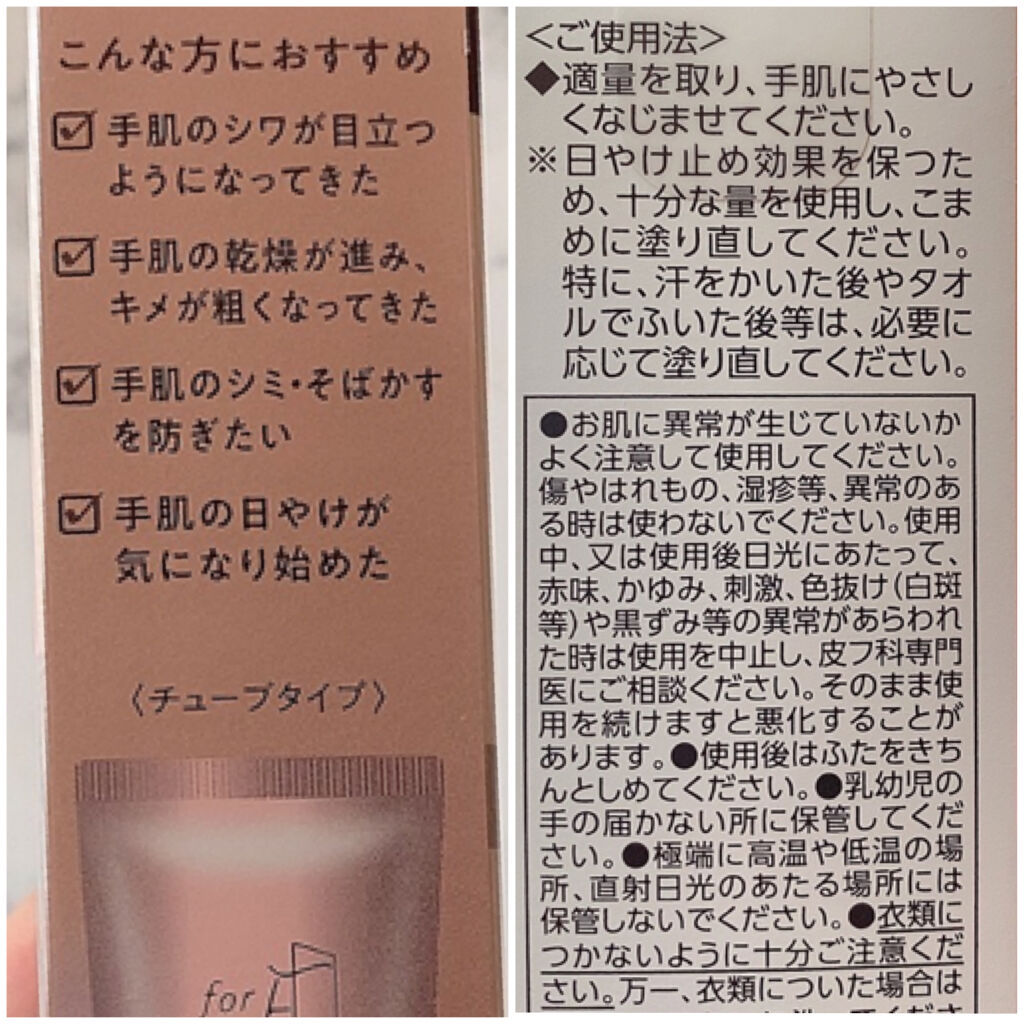 こんな方におすすめ
手肌のシワが目立つ
ようになってきた
手肌の乾燥が進み、
キメが粗くなってきた
手肌のシミ・そばかす
を防ぎたい
手肌の日やけが
気になり始めた
〈チューブタイプ〉
for
<ご使用法>
◆適量を取り、手肌にやさし
くなじませてください。
※日やけ止め効果を保つた
め、十分な量を使用し、こま
めに塗り直してください。
特に、汗をかいた後やタオ
ルでふいた後等は、必要に
応じて塗り直してください。
●お肌に異常が生じていないか
よく注意して使用してください。
傷やはれもの、湿疹等、異常のあ
る時は使わないでください。使用
中、又は使用後日光にあたって、
赤味、かゆみ、刺激、色抜け(白斑
等)や黒ずみ等の異常があらわれ
た時は使用を中止し、皮フ科専門
医にご相談ください。そのまま使
用を続けますと悪化することが
あります。●使用後はふたをきち
んとしめてください。●乳幼児の
手の届かない所に保管してくだ
さい。●極端に高温や低温の場
所、直射日光のあたる場所には
保管しないでください。●衣類に
つかないように十分ご注意くだ
さい。万一、衣類についた場合は